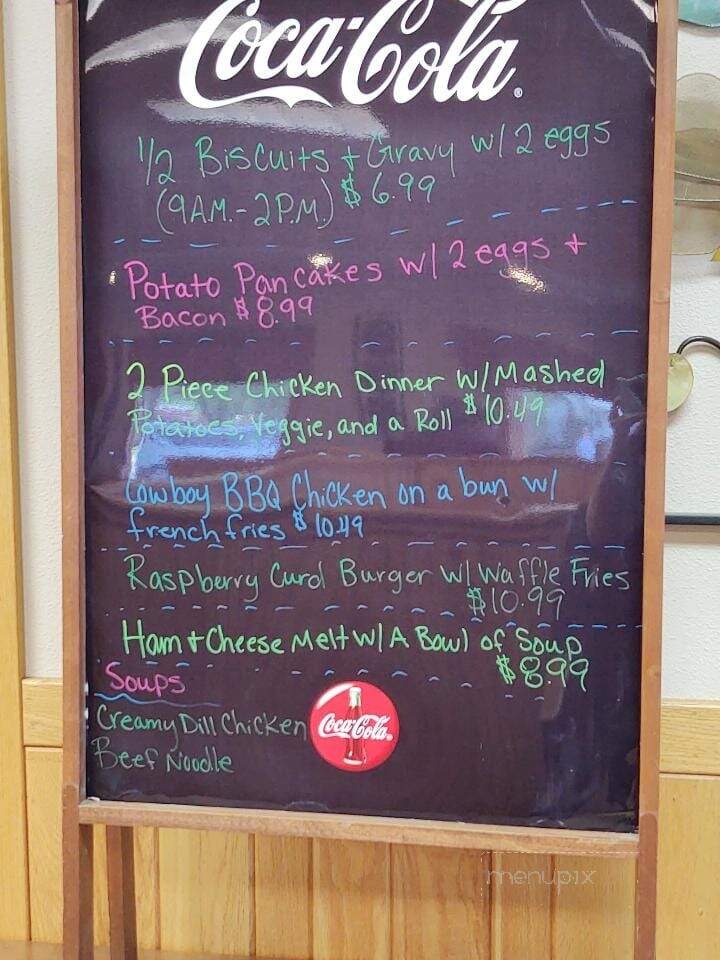 Coca-Cola®
1/2 Biscuits + Gravy w/ 2 eggs
(9AM.-2P.M.) $6.99
Potato Pancakes w/ 2 eggs +
Bacon $8.99
2 Piece Chicken Dinner w/Mashed
Potatoes, Veggie, and a Roll $10.49
Cowboy BBQ Chicken on a bun w/
french fries $10.49
Raspberry Curd Burger w/ Waffle Fries
$10.99
Ham + Cheese Melt W/ A Bowl of Soup
$8.99
Soups
Creamy Dill Chicken
Beef Noodle
Coca-Cola
menupix